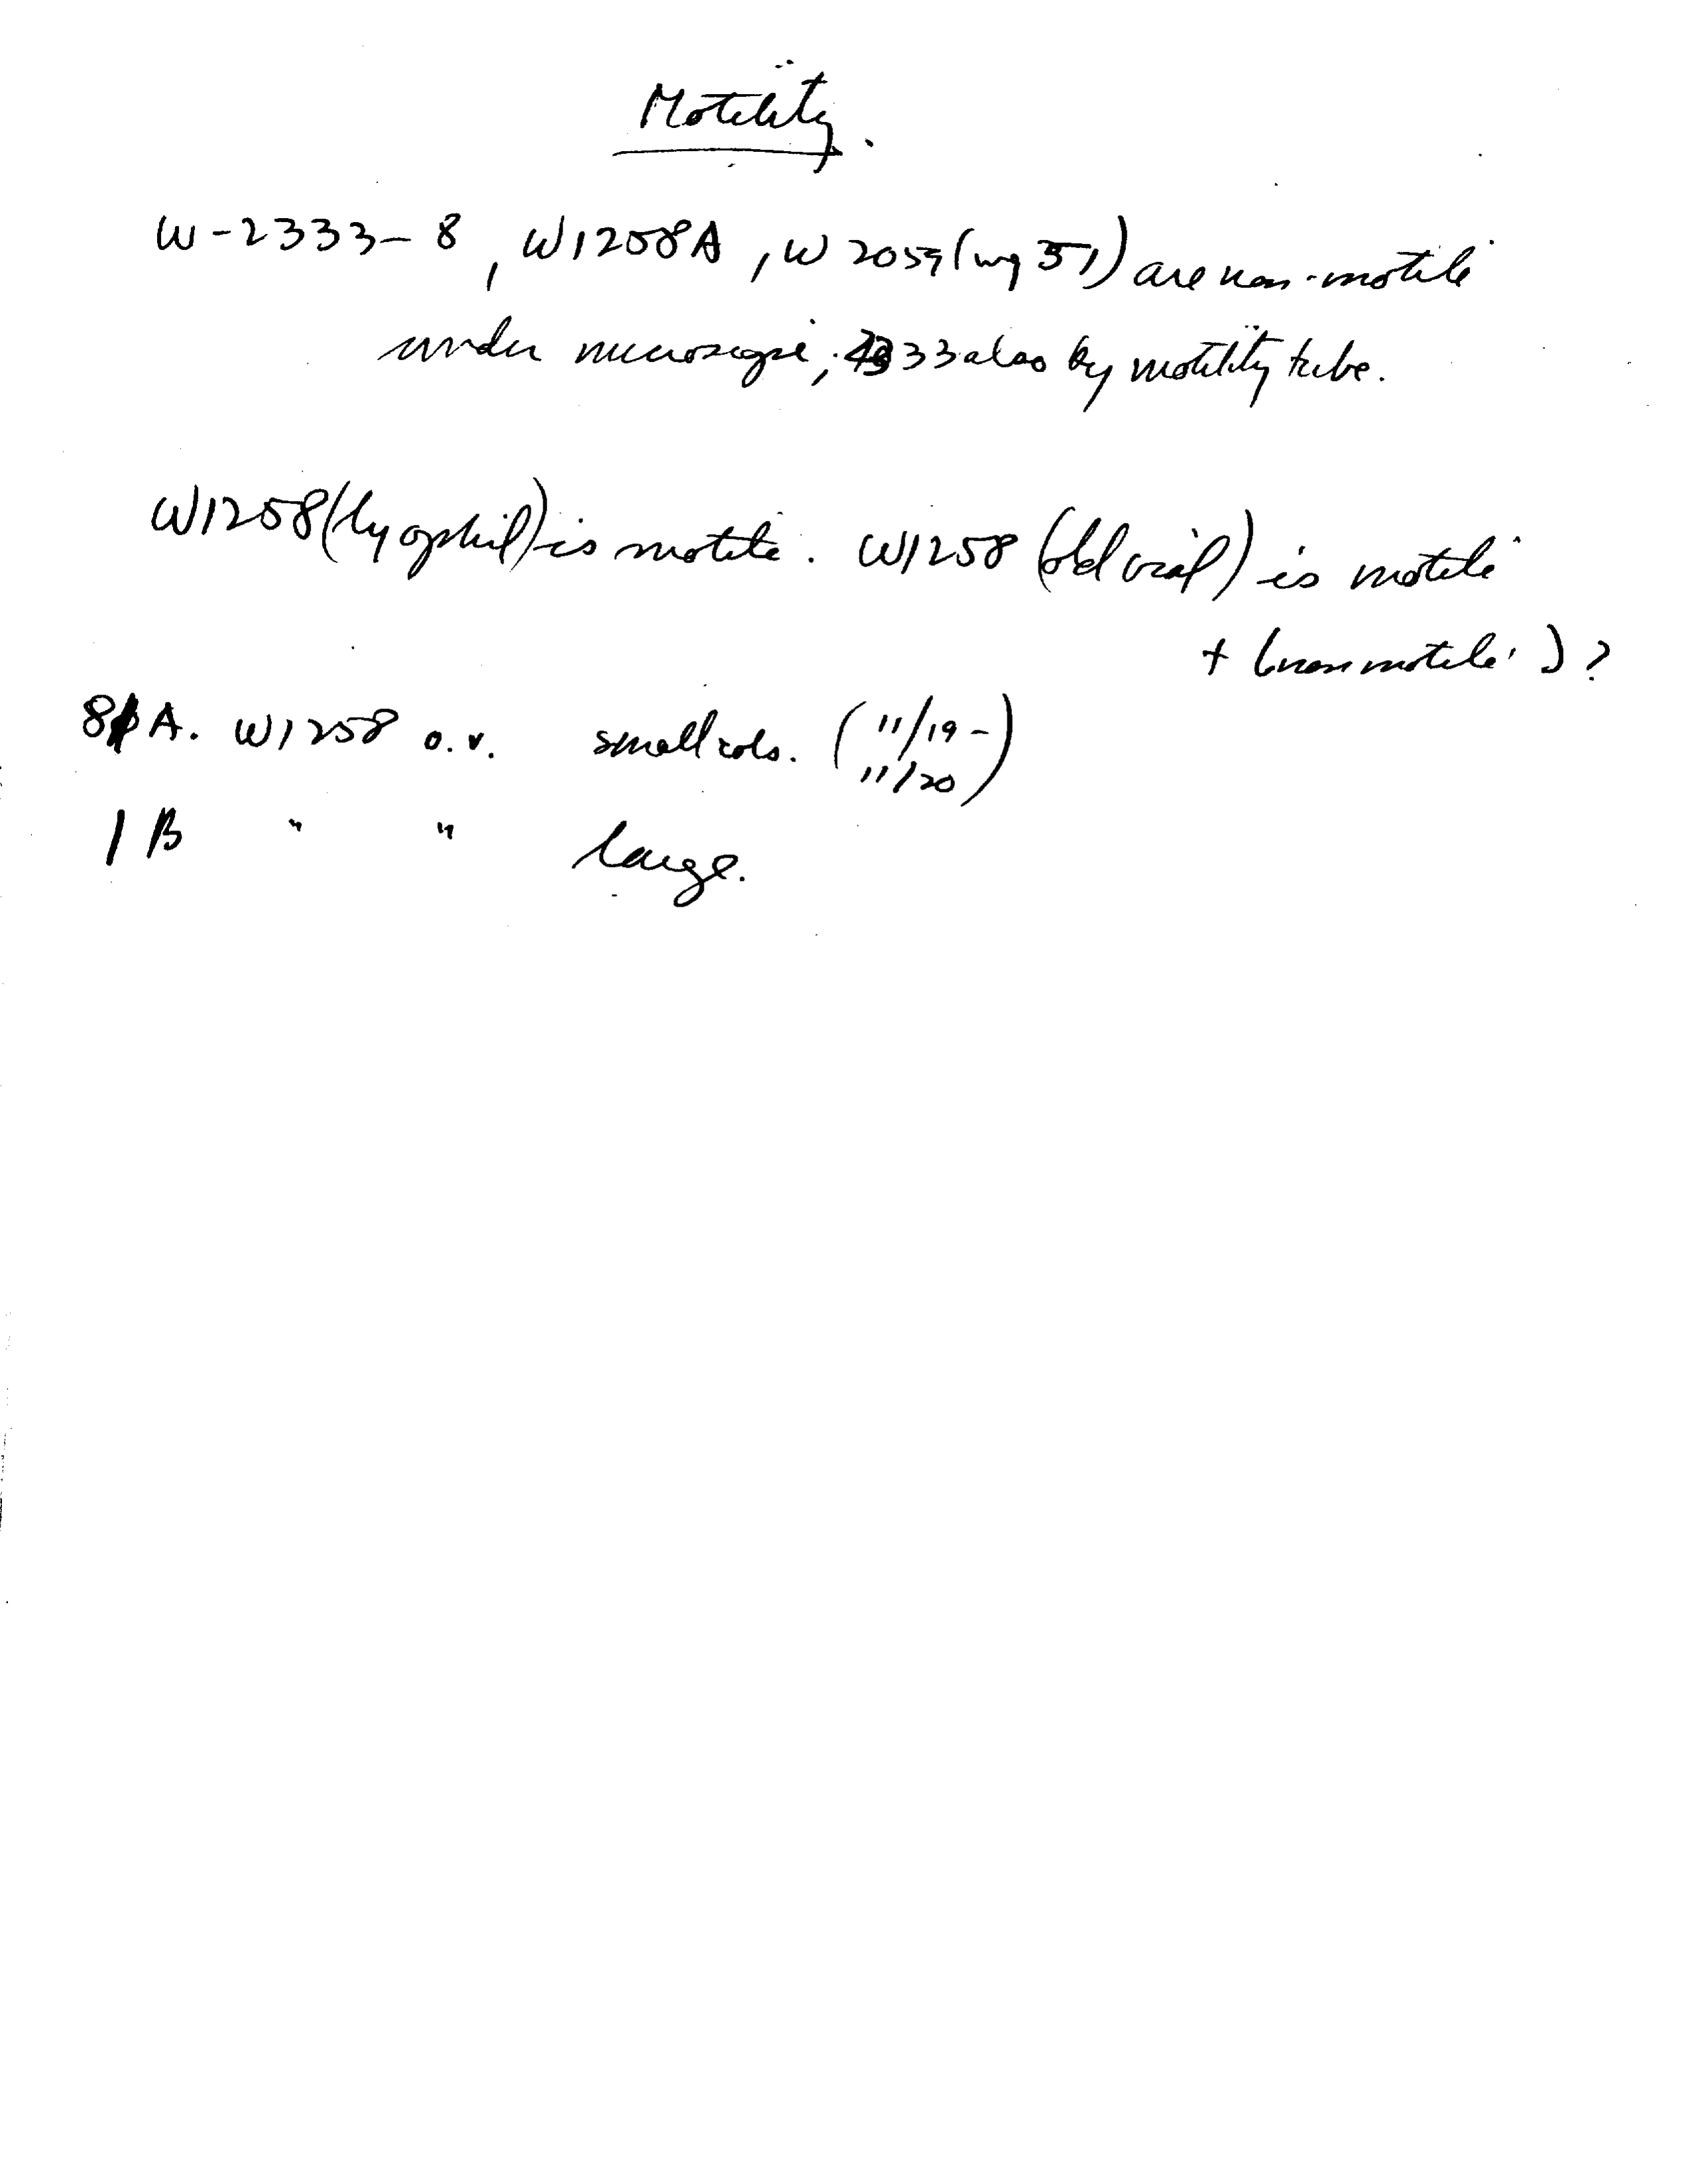 Motility.
W-2333-8, W1258A, W 2059 (wg 51) are non-motile
under microscope; 33 also by motility tube.
W1258 (lyophil) is motile. W1258 (old vial) is motile
+ (non motile) ?
8 A. W1258 o.v. small cols. (11/19 -
11/20)
1 B " " large.